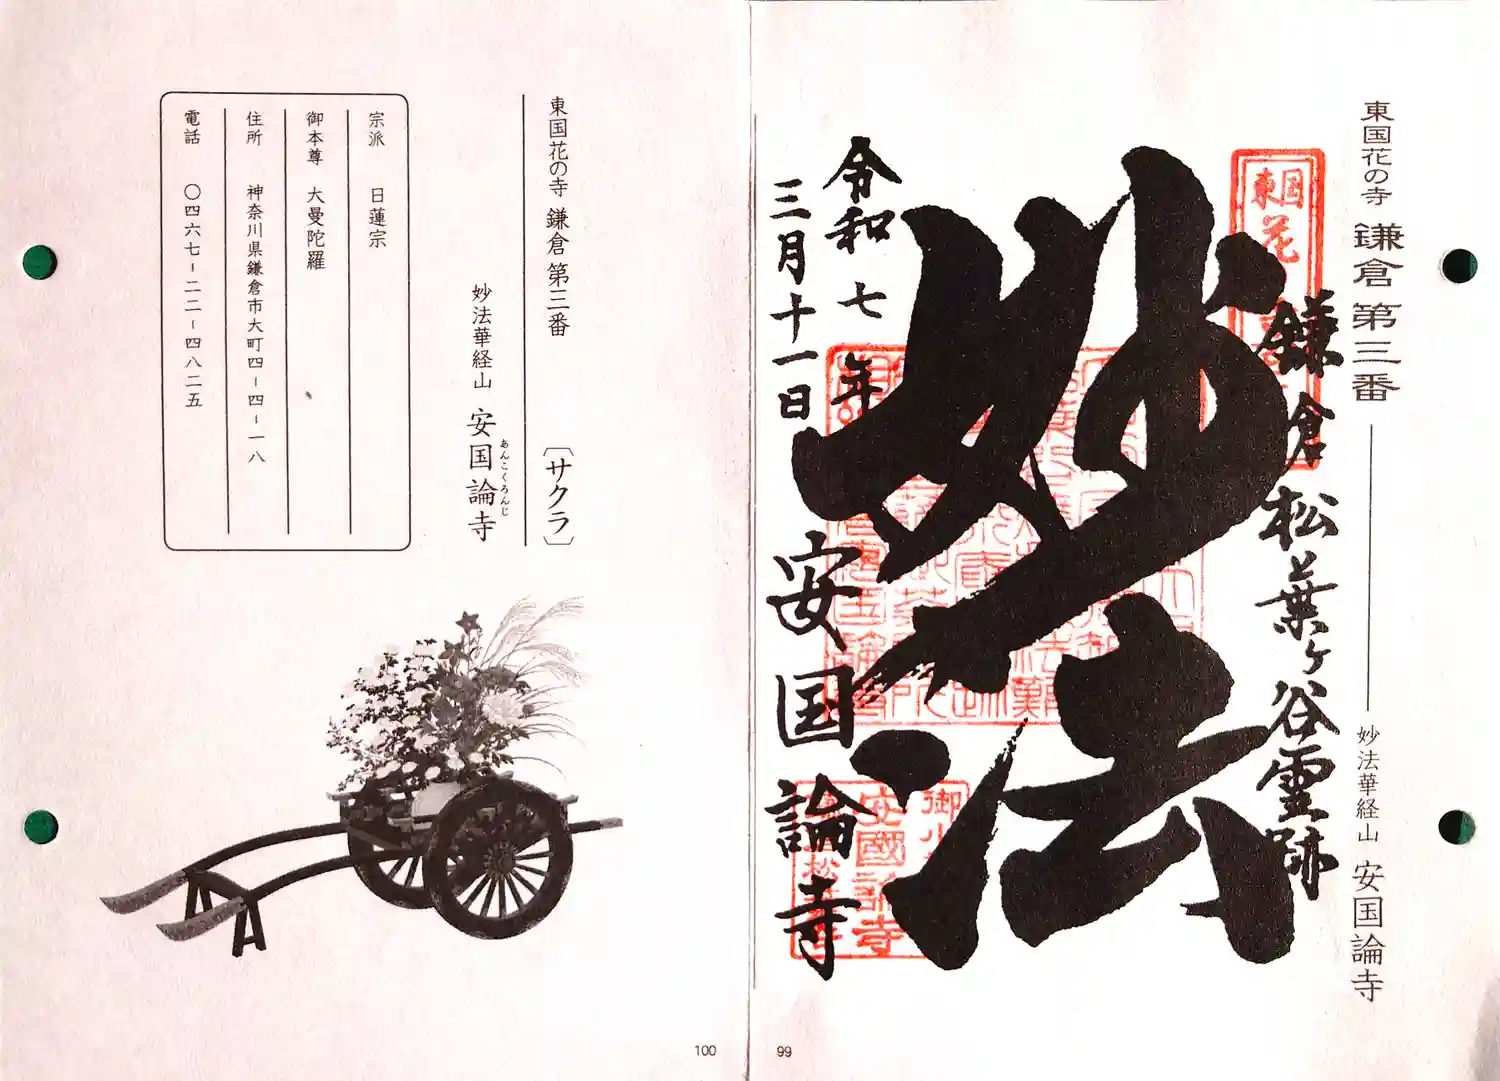 東国花の寺 鎌倉 第三番
妙法華経山 安国論寺
東国
花
鎌倉松葉ヶ谷霊跡
妙法
令和七年
三月十一日
安国論寺
安國論寺
99
東国花の寺 鎌倉 第三番 〔サクラ〕
妙法華経山 安国論寺
あんこくろんじ
宗派 日蓮宗
御本尊 大曼陀羅
住所 神奈川県鎌倉市大町四-四-一八
電話 〇四六七-二二-四八二五
100